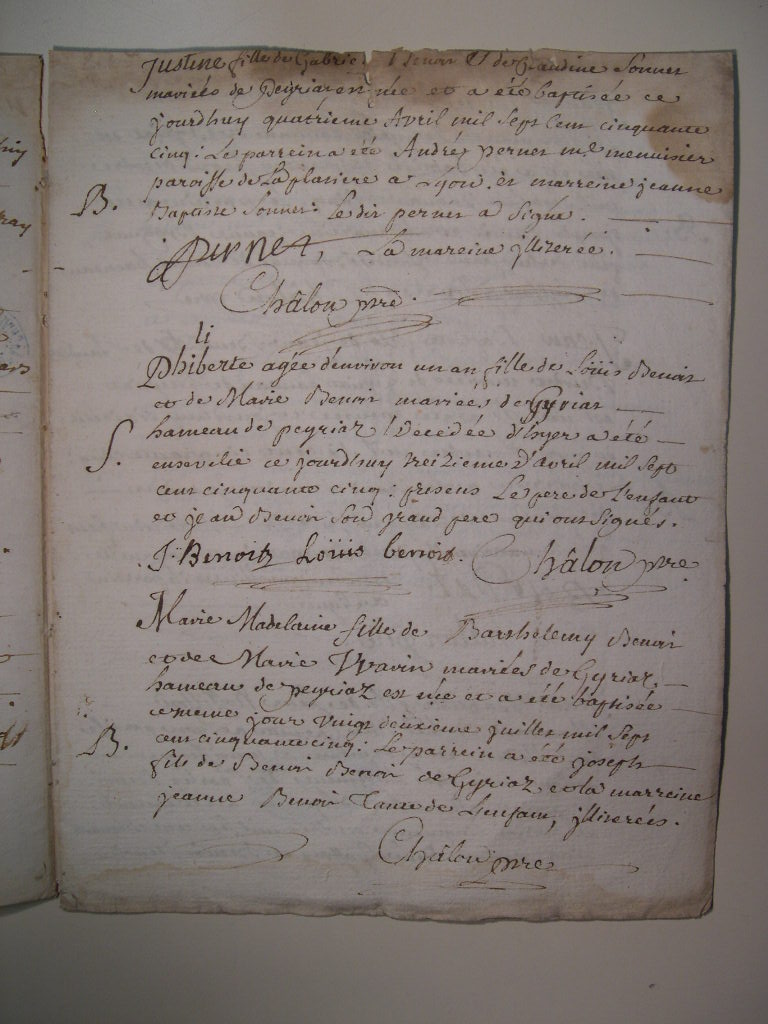 Justine fille de Gabriel Benoit & de Claudine Sonner
mariés de Peyriaz est née et a été baptisée ce
jourdhuy quatrieme Avril mil sept cent cinquante
cinq: Le parrein a été André perner me menuisier
paroisse de La platiere a Lyon. et marreine jeanne
B. Baptiste Sonner: le dit perner a signé.
APERNET, La mareine jlliterée.
Châlon ptre.
li
Phiberte agée denviron un an fille de Loüis Benoit
et de Marie Benoit mariés de Gyriaz
hameau de peyriaz decedée d'hyer a été
S. ensevelie ce jourdhuy treizieme d'Avril mil sept
cent cinquante cinq: presens Le pere de L'enfant
et jean Benoit son grand pere qui ont signés.
J. Benoit Loüis benoit. Châlon ptre
Marie Madelaine fille de Barthelemy Benoit
et de Marie mariées de Gyriaz.
hameau de peyriaz est née et a été baptisée
ce meme jour vingt deuxieme juillet mil sept
B. cent cinquante cinq: Le parrein a été joseph
fils de Benoit Benoit de Gyriaz et la marreine
jeanne Benoit Tante de L'enfant, jlliterées.
Châlon ptre